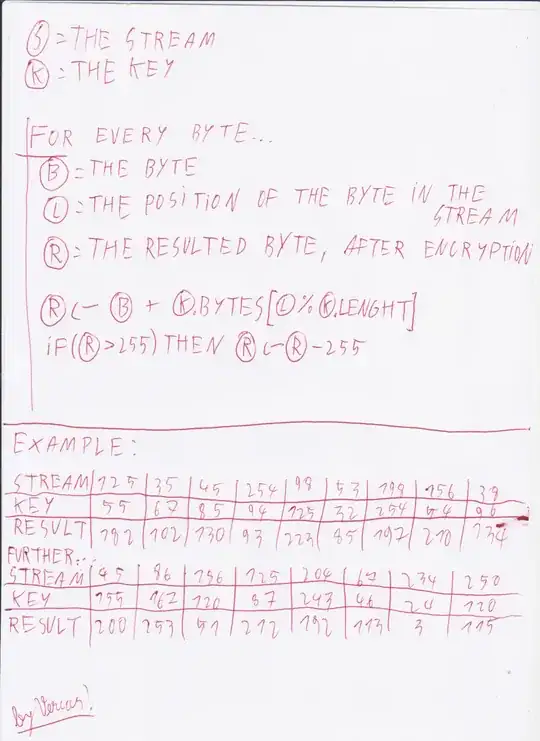 S = THE STREAM
K = THE KEY
FOR EVERY BYTE...
B = THE BYTE
L = THE POSITION OF THE BYTE IN THE
STREAM
R = THE RESULTED BYTE, AFTER ENCRYPTION
R <- B + K.BYTES[L % K.LENGHT]
iF(R > 255) THEN R <- R - 255
EXAMPLE:
STREAM 125 35 45 254 98 53 198 156 38
KEY 55 67 85 94 125 32 254 54 96
RESULT 182 102 130 93 223 85 197 210 134
FURTHER...
STREAM 45 86 186 125 204 67 234 250
KEY 155 167 120 87 243 46 24 120
RESULT 200 253 51 212 192 113 3 115
by Vercas!